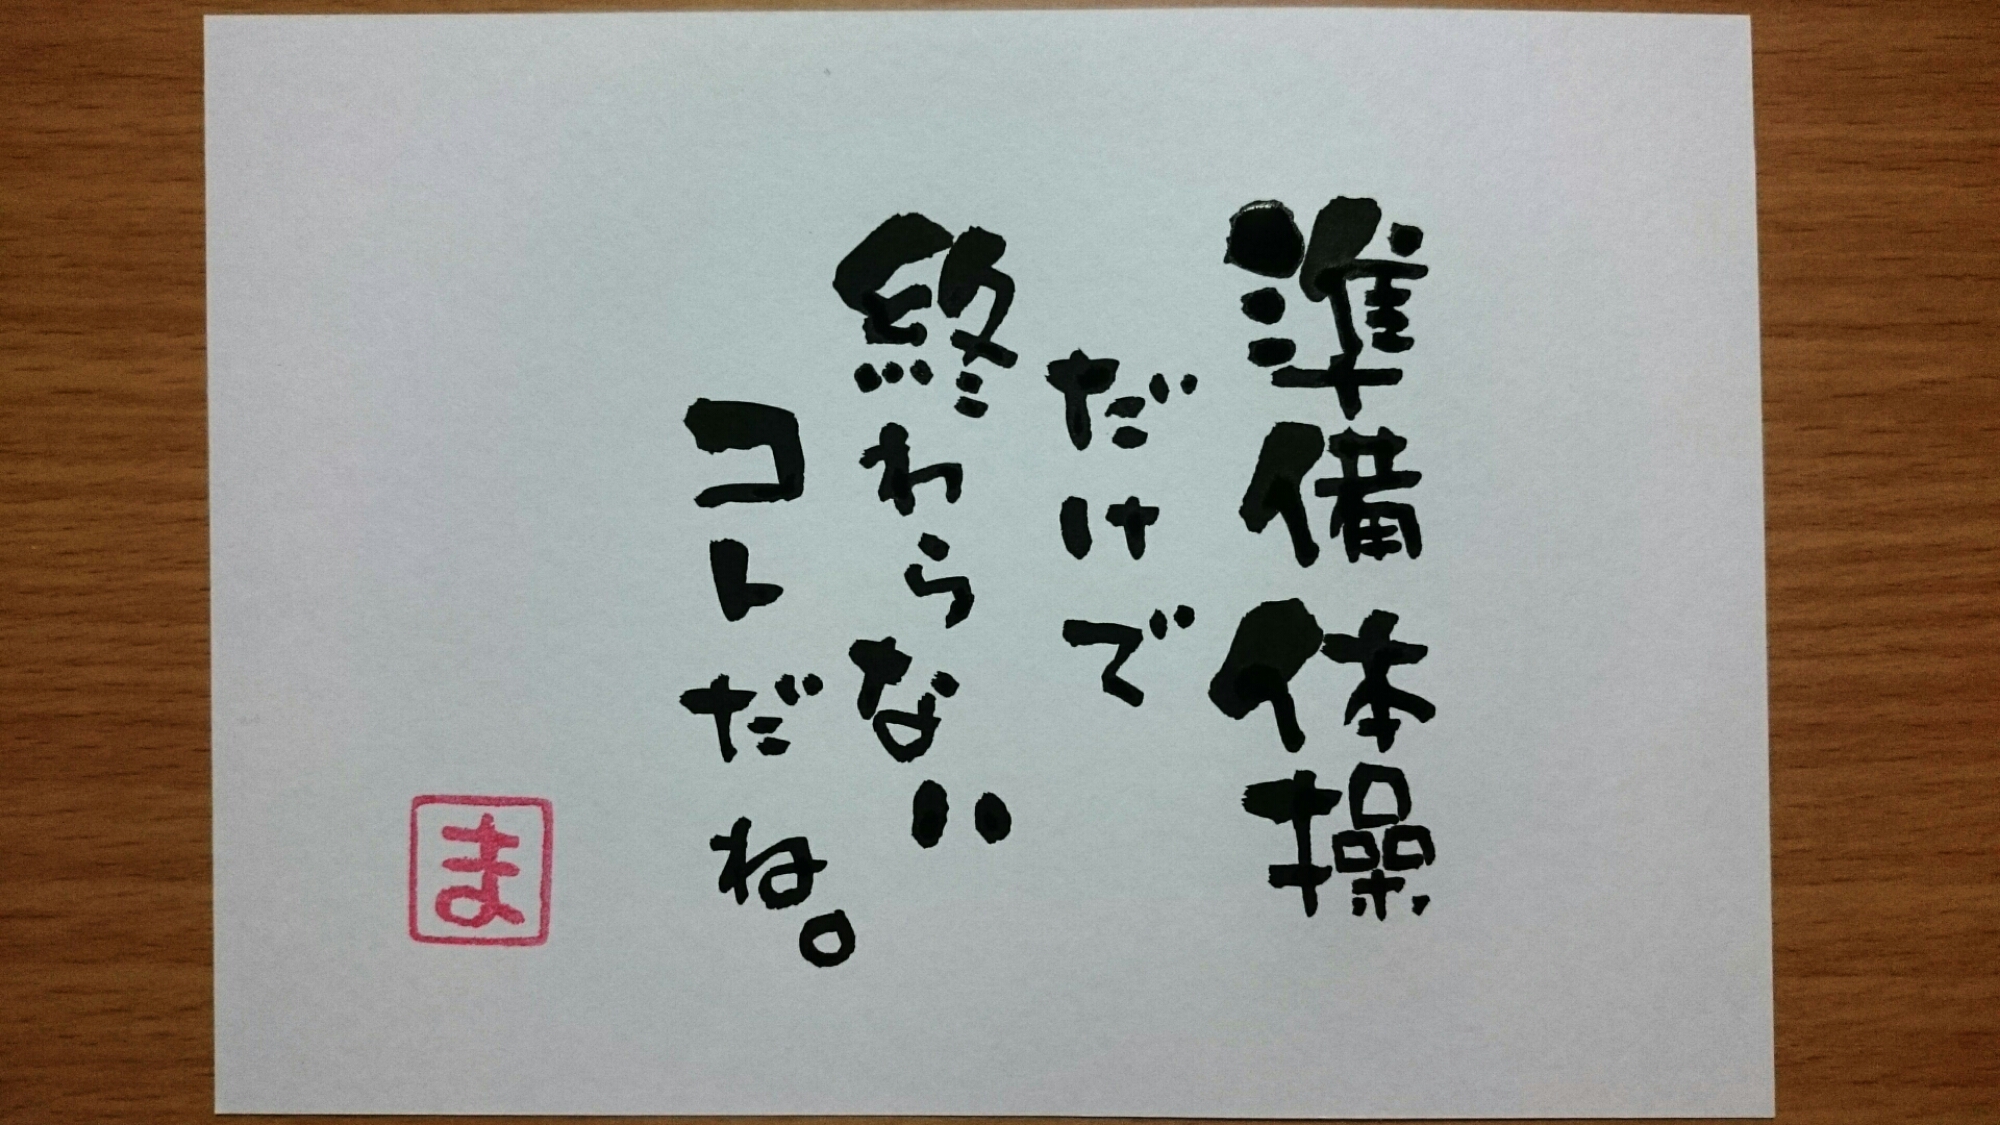 準備体操
だけで
終わらない
コトだね。
ま